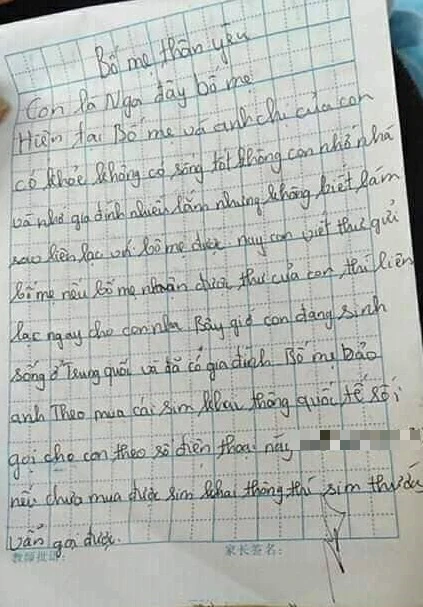 Bố mẹ thân yêu
Con là Nga đây bố mẹ
Hiện tại Bố mẹ và anh chị của con
có khỏe không có sống tốt không con nhớ nhà
và nhớ gia đình nhiều lắm nhưng không biết làm
sao liên lạc với bố mẹ được nay con viết thư gửi
bố mẹ nếu bố mẹ nhận được thư của con, thì liên
lạc ngay cho con nha Bây giờ con đang sinh
sống ở Trung quốc và đã có gia đình Bố mẹ bảo
anh Theo mua cái sim khai thông quốc tế rồi
gọi cho con theo số điện thoại này
nếu chưa mua được sim khai thông thì sim thường
vẫn gọi được.
教师批语: 家长签名: